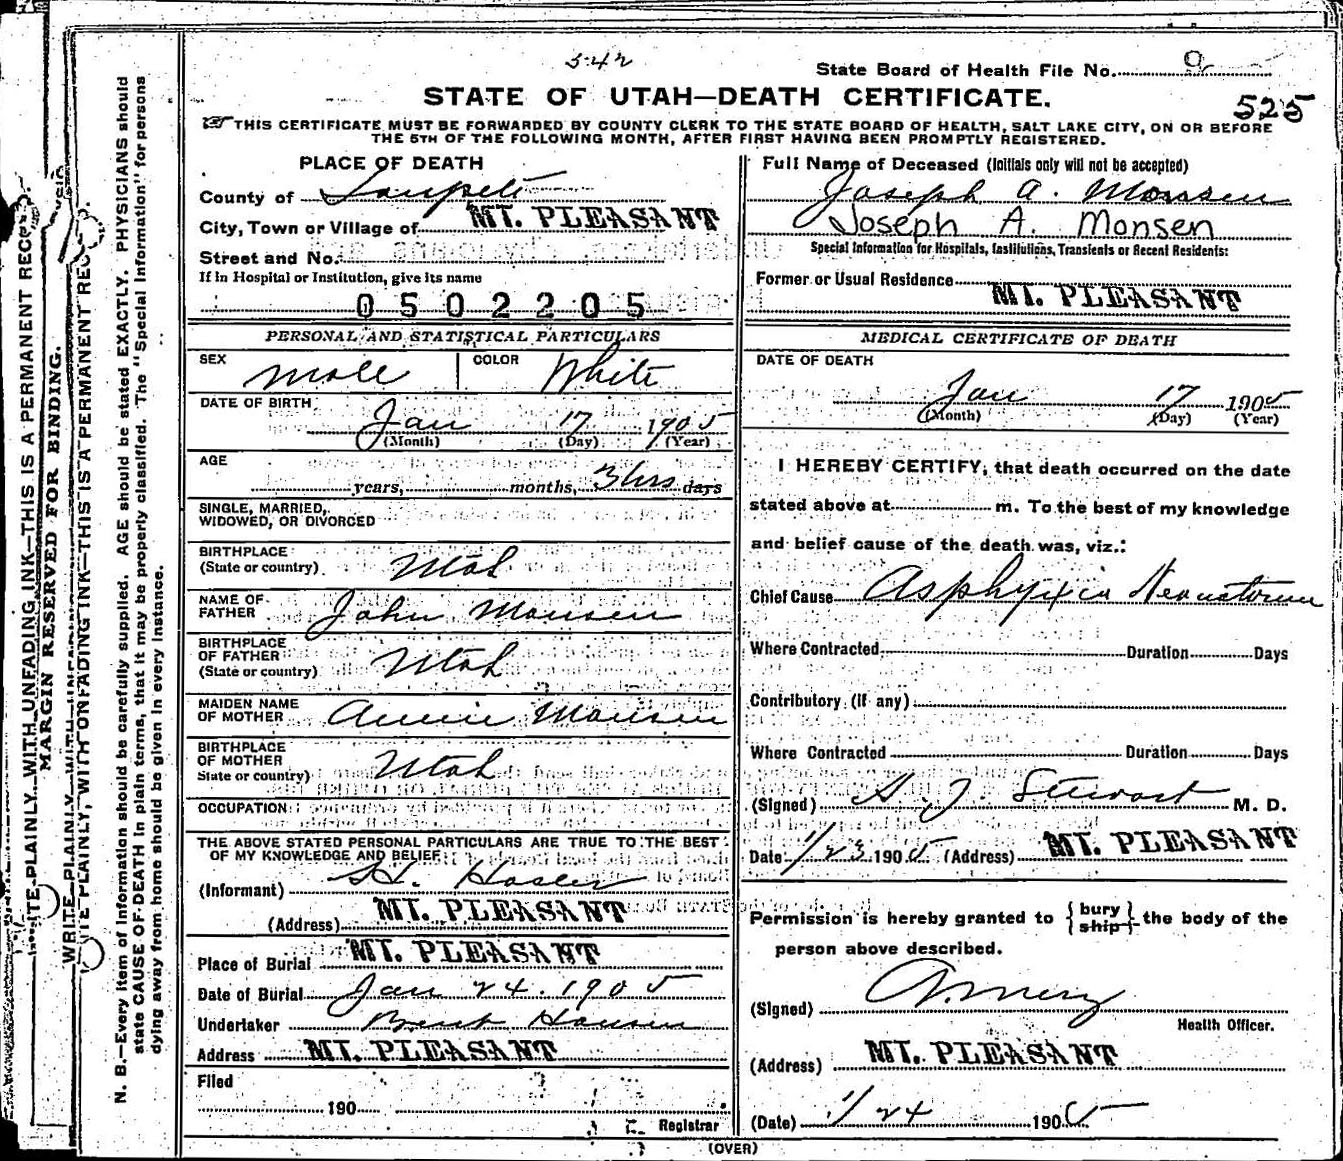 542
State Board of Health File No. 9
STATE OF UTAH—DEATH CERTIFICATE.
525
THIS CERTIFICATE MUST BE FORWARDED BY COUNTY CLERK TO THE STATE BOARD OF HEALTH, SALT LAKE CITY, ON OR BEFORE
THE 5TH OF THE FOLLOWING MONTH, AFTER FIRST HAVING BEEN PROMPTLY REGISTERED.
PLACE OF DEATH
County of Sanpete
City, Town or Village of MT. PLEASANT
Street and No.
If in Hospital or Institution, give its name
0502205
PERSONAL AND STATISTICAL PARTICULARS
SEX Male COLOR White
DATE OF BIRTH
Jan 17 1905
(Month) (Day) (Year)
AGE
years, months, 3 hrs days
SINGLE, MARRIED,
WIDOWED, OR DIVORCED
BIRTHPLACE
(State or country) Utah
NAME OF
FATHER John Monsen
BIRTHPLACE
OF FATHER
(State or country) Utah
MAIDEN NAME
OF MOTHER Annie Monsen
BIRTHPLACE
OF MOTHER
State or country) Utah
OCCUPATION
THE ABOVE STATED PERSONAL PARTICULARS ARE TRUE TO THE BEST
OF MY KNOWLEDGE AND BELIEF
(Informant) H. Hasler
(Address) MT. PLEASANT
Place of Burial MT. PLEASANT
Date of Burial Jan 24. 1905
Undertaker Bent Hansen
Address MT. PLEASANT
Filed
190
Registrar
Full Name of Deceased (Initials only will not be accepted)
Joseph A. Monsen
Joseph A. Monsen
Special Information for Hospitals, Institutions, Transients or Recent Residents:
Former or Usual Residence MT. PLEASANT
MEDICAL CERTIFICATE OF DEATH
DATE OF DEATH
Jan 17 1905
(Month) (Day) (Year)
I HEREBY CERTIFY, that death occurred on the date
stated above at m. To the best of my knowledge
and belief cause of the death was, viz.:
Chief Cause Asphyxia Neonatorum
Where Contracted Duration Days
Contributory (if any)
Where Contracted Duration Days
(Signed) A. J. Stewart M. D.
Date 1/23 1905 (Address) MT. PLEASANT
Permission is hereby granted to {bury
ship} the body of the
person above described.
(Signed)
Health Officer.
(Address) MT. PLEASANT
(Date) 1/24 1905
(OVER)
MARGIN RESERVED FOR BINDING.
WRITE PLAINLY, WITH UNFADING INK—THIS IS A PERMANENT RECORD.
N. B.—Every item of information should be carefully supplied. AGE should be stated EXACTLY. PHYSICIANS should
state CAUSE OF DEATH in plain terms, that it may be properly classified. The "Special Information" for persons
dying away from home should be given in every instance.